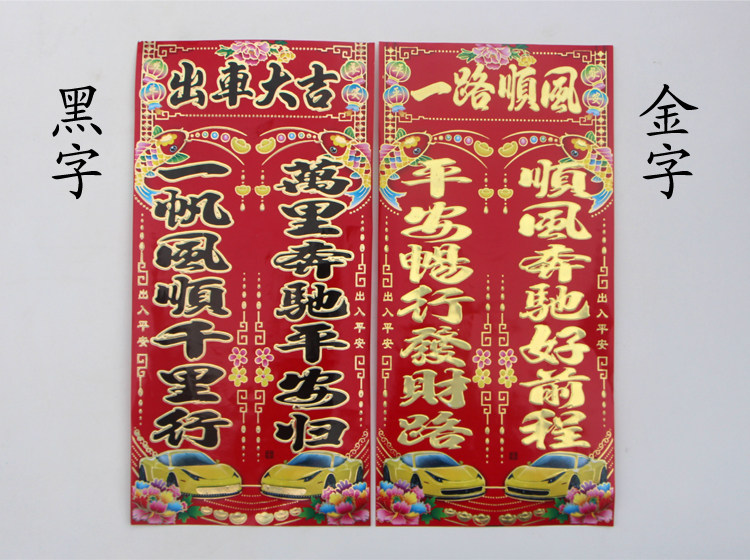 黑字
出車大吉
萬里奔馳平安归
一帆風順千里行
出入平安
出入平安
一路順風
順風奔馳好前程
平安暢行發財路
出入平安
出入平安
金字